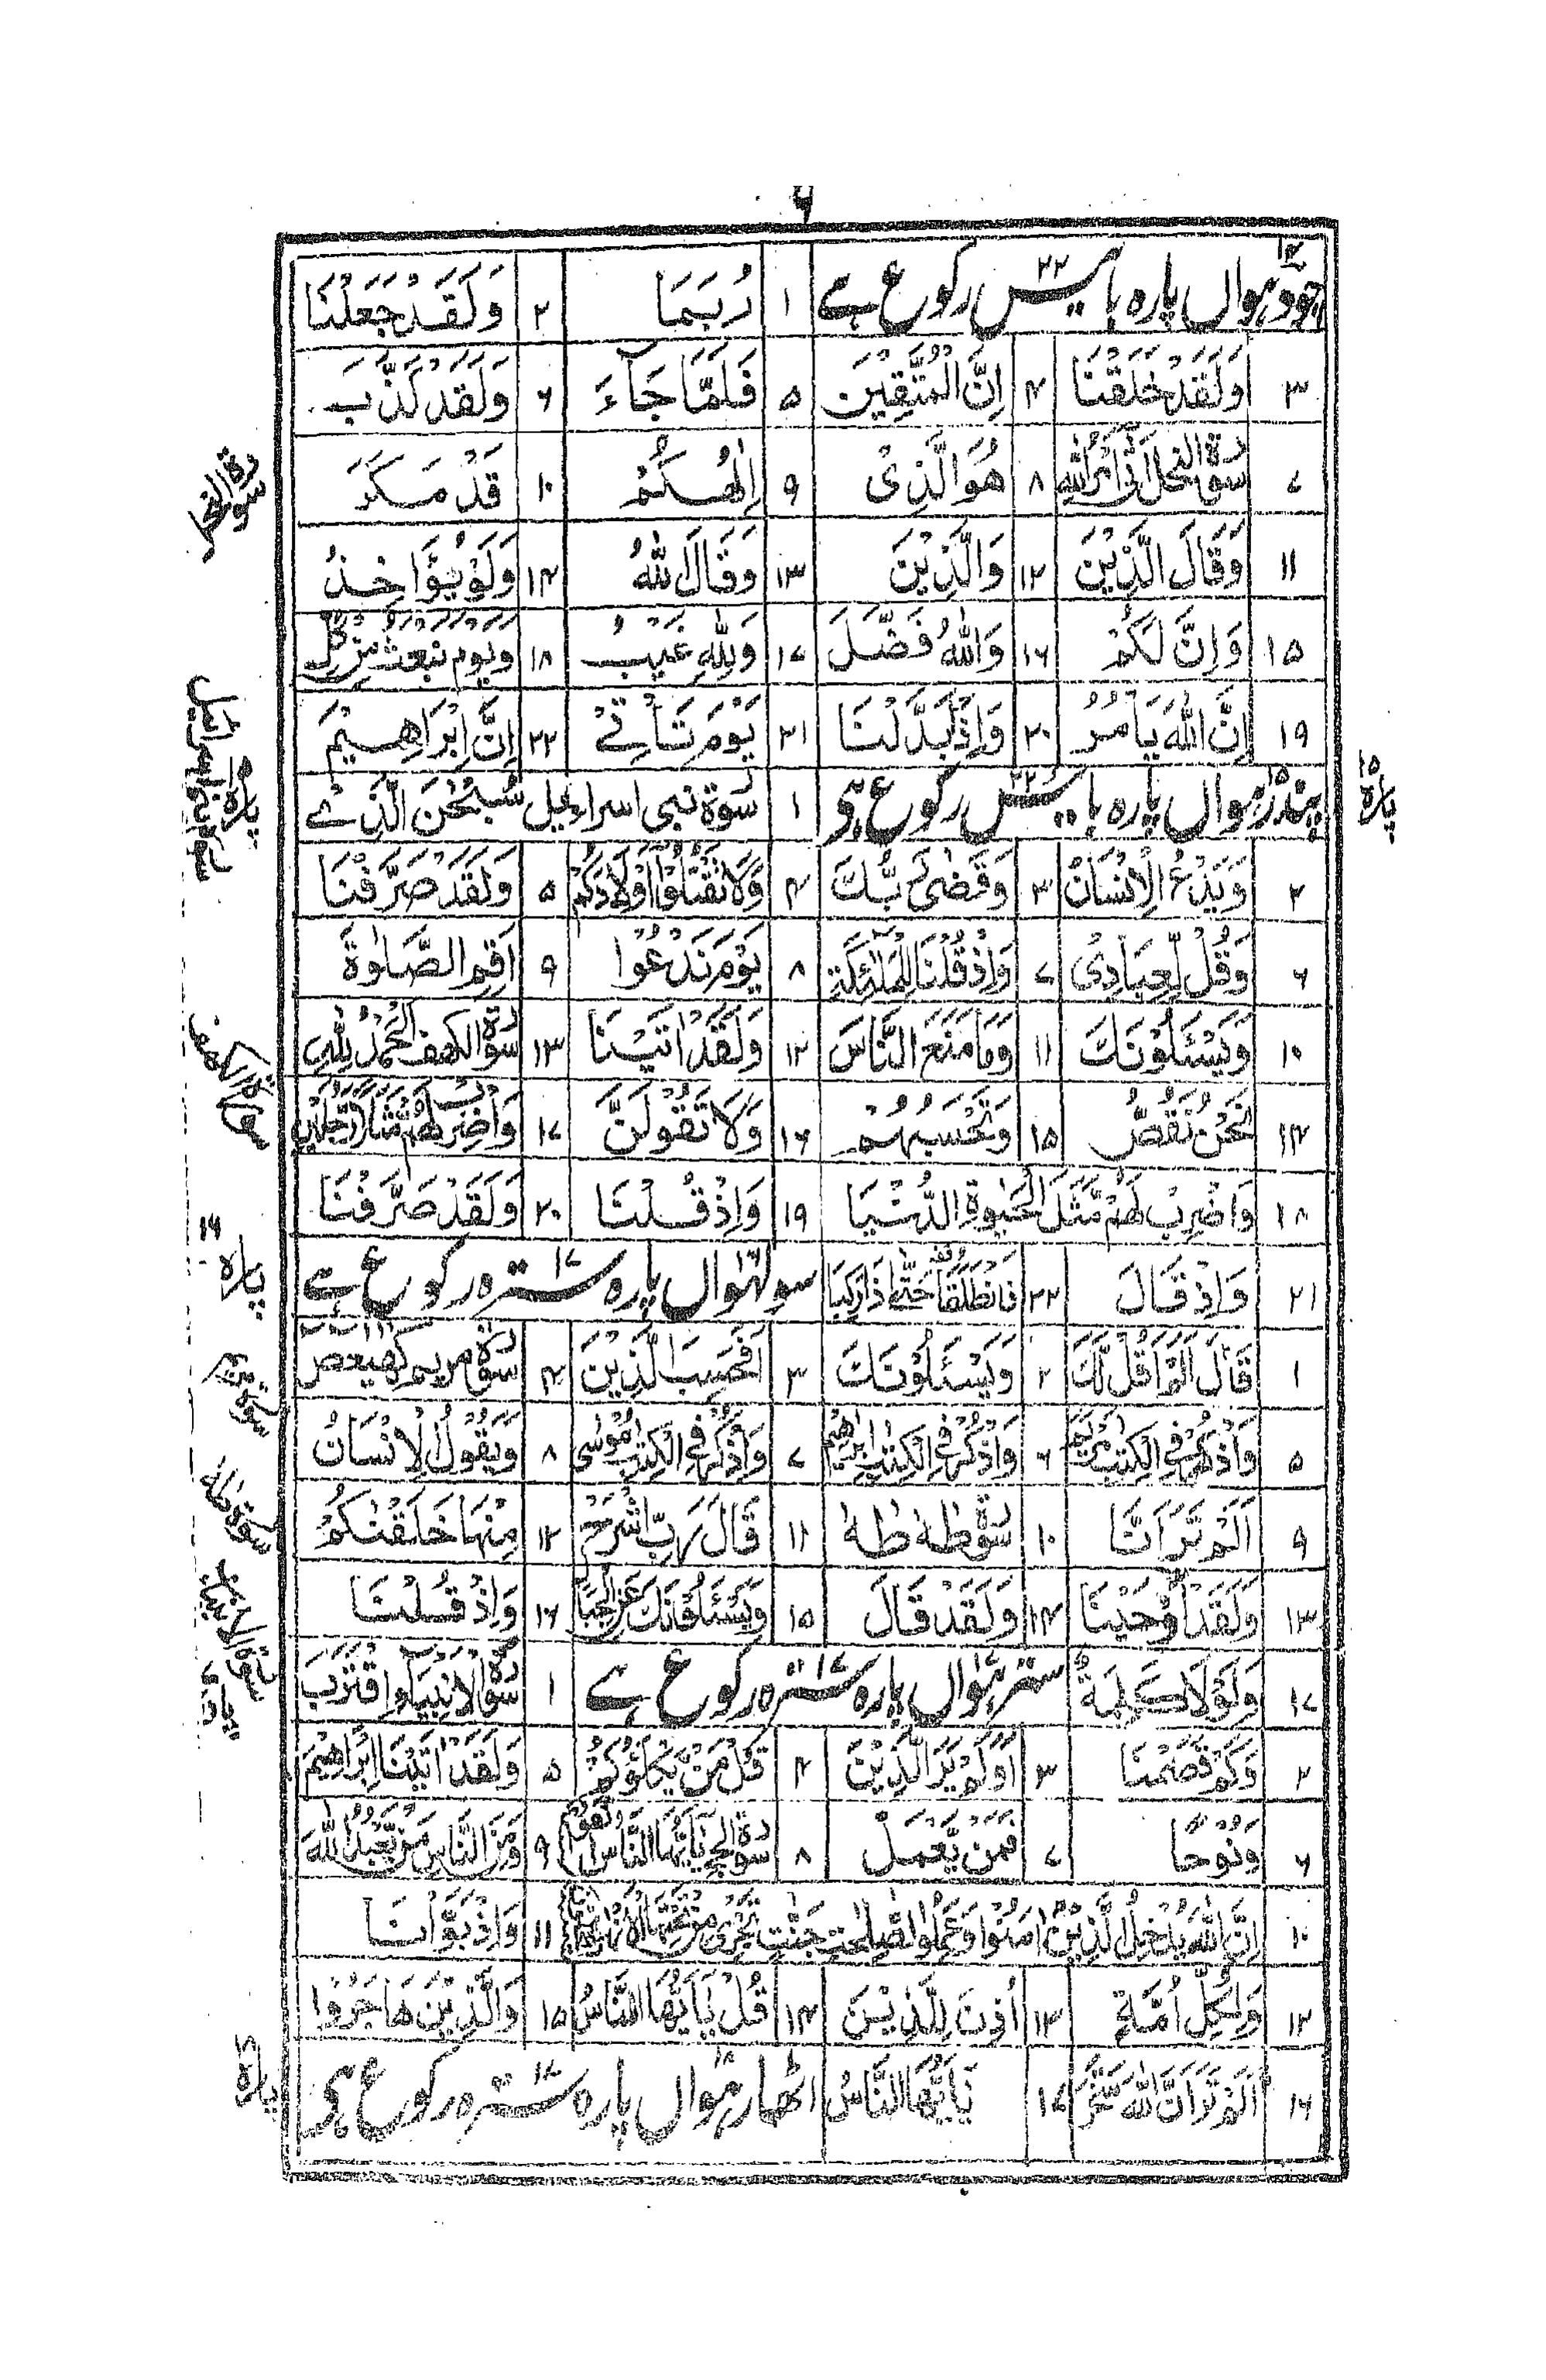 ۶
چودہواں ۱۴ پارہ بائیس ۲۲ رکوع ہے ۱ رُبَمَا ۲ وَلَقَدْ جَعَلْنَا
۳ وَلَقَدْ خَلَقْنَا ۴ اِنَّ الْمُتَّقِيْنَ ۵ فَلَمَّا جَآءَ ۶ وَلَقَدْ كَذَّبَ
۷ سورۃ النحل اَتٰى اَمْرُ اللّٰهِ ۸ هُوَ الَّذِىْ ۹ اِلٰهُكُمْ ۱۰ قَدْ مَكَرَ
۱۱ وَقَالَ الَّذِيْنَ ۱۲ وَالَّذِيْنَ ۱۳ وَقَالَ اللّٰهُ ۱۴ وَلَوْ يُؤَاخِذُ
۱۵ وَاِنَّ لَكُمْ ۱۶ وَاللّٰهُ فَضَّلَ ۱۷ وَلِلّٰهِ غَيْبُ ۱۸ وَيَوْمَ نَبْعَثُ مِنْ كُلِّ
۱۹ اِنَّ اللّٰهَ يَاْمُرُ ۲۰ وَاِذَا بَدَّلْنَا ۲۱ يَوْمَ تَاْتِىْ ۲۲ اِنَّ اِبْرَاهِيْمَ
پندرہواں ۱۵ پارہ بائیس ۲۲ رکوع ہی ۱ سورۃ بنی اسراءیل سُبْحٰنَ الَّذِىْ
۲ وَيَدْعُ الْاِنْسَانُ ۳ وَقَضٰى رَبُّكَ ۴ وَلَا تَقْتُلُوْا اَوْلَادَكُمْ ۵ وَلَقَدْ صَرَّفْنَا
۶ وَقُلْ لِّعِبَادِىْ ۷ وَاِذْ قُلْنَا لِلْمَلٰٓئِكَةِ ۸ يَوْمَ نَدْعُوْا ۹ اَقِمِ الصَّلٰوةَ
۱۰ وَيَسْئَلُوْنَكَ ۱۱ وَمَا مَنَعَ النَّاسَ ۱۲ وَلَقَدْ اٰتَيْنَا ۱۳ سورۃ الكهف اَلْحَمْدُ لِلّٰهِ
۱۴ نَحْنُ نَقُصُّ ۱۵ وَتَحْسَبُهُمْ ۱۶ وَلَا تَقُوْلَنَّ ۱۷ وَاضْرِبْ لَهُمْ مَّثَلًا رَّجُلَيْنِ
۱۸ وَاضْرِبْ لَهُمْ مَّثَلَ الْحَيٰوةِ الدُّنْيَا ۱۹ وَاِذْ قُلْنَا ۲۰ وَلَقَدْ صَرَّفْنَا
۲۱ وَاِذْ قَالَ ۲۲ فَانْطَلَقَا حَتّٰى اِذَا رَكِبَا سولہواں ۱۶ پارہ سترہ ۱۷ رکوع ہے
۱ قَالَ اَلَمْ اَقُلْ لَّكَ ۲ وَيَسْئَلُوْنَكَ ۳ اَفَحَسِبَ الَّذِيْنَ ۴ سورۃ مريم كهيعص
۵ وَاذْكُرْ فِى الْكِتٰبِ مَرْيَمَ ۶ وَاذْكُرْ فِى الْكِتٰبِ اِبْرٰهِيْمَ ۷ وَاذْكُرْ فِى الْكِتٰبِ مُوْسٰى ۸ وَيَقُوْلُ الْاِنْسَانُ
۹ اَلَمْ تَرَ اَنَّا ۱۰ سورۃ طٰهٰ طٰهٰ ۱۱ قَالَ رَبِّ اشْرَحْ ۱۲ مِنْهَا خَلَقْنٰكُمْ
۱۳ وَلَقَدْ اَوْحَيْنَا ۱۴ وَلَقَدْ قَالَ ۱۵ وَيَسْئَلُوْنَكَ عَنِ الْجِبَالِ ۱۶ وَاِذْ قُلْنَا
۱۷ وَلَوْ لَا كَلِمَةٌ سترہواں ۱۷ پارہ سترہ ۱۷ رکوع ہے ۱ سورۃ الانبیآء اِقْتَرَبَ
۲ وَكَمْ قَصَمْنَا ۳ اَوَلَمْ يَرَ الَّذِيْنَ ۴ قُلْ مَنْ يَّكْلَؤُكُمْ ۵ وَلَقَدْ اٰتَيْنَا اِبْرَاهِيْمَ
۶ وَنُوْحًا ۷ فَمَنْ يَّعْمَلْ ۸ سورۃ الحج يٰٓاَيُّهَا النَّاسُ اتَّقُوْا ۹ وَمِنَ النَّاسِ مَنْ يَّعْبُدُ اللّٰهَ
۱۰ اِنَّ اللّٰهَ يُدْخِلُ الَّذِيْنَ اٰمَنُوْا وَعَمِلُوا الصّٰلِحٰتِ جَنّٰتٍ تَجْرِىْ مِنْ تَحْتِهَا الْاَنْهٰرُ ۱۱ وَاِذْ بَوَّاْنَا
۱۲ وَلِكُلِّ اُمَّةٍ ۱۳ اُذِنَ لِلَّذِيْنَ ۱۴ قُلْ يٰٓاَيُّهَا النَّاسُ ۱۵ وَالَّذِيْنَ هَاجَرُوْا
۱۶ اَلَمْ تَرَ اَنَّ اللّٰهَ سَخَّرَ ۱۷ يٰٓاَيُّهَا النَّاسُ اٹھارہواں ۱۸ پارہ سترہ ۱۷ رکوع ہی
سورۃ النحل
سورۃ بنی اسرائیل
پارہ
پارہ ۱۵
سورۃ الکہف
پارہ ۱۶
سورۃ مریم
سورۃ طٰہٰ
سورۃ الانبیا
پارہ